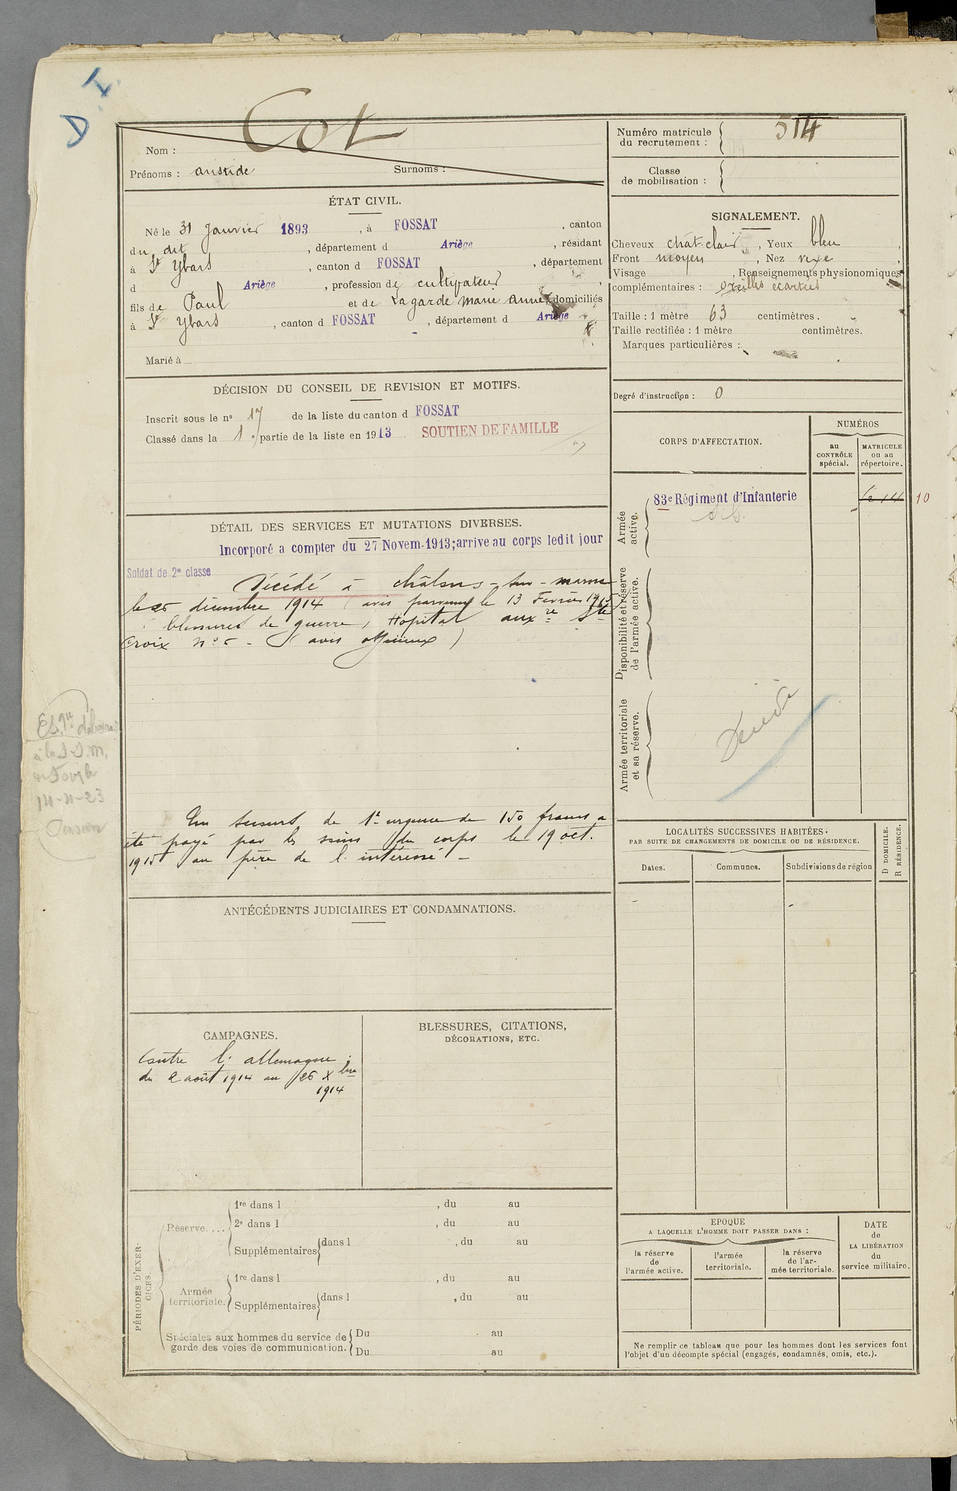 D I.
Nom : Cot
Prénoms : aristide Surnoms :
ÉTAT CIVIL.
Né le 31 Janvier 1893, à FOSSAT, canton
du dit, département d Ariège, résidant
à St Ybars, canton d FOSSAT, département
d Ariège, profession de cultivateur
fils de Paul et de Lagarde Marie Anne, domiciliés
à St Ybars, canton d FOSSAT, département d Ariège
Marié à
DÉCISION DU CONSEIL DE REVISION ET MOTIFS.
Inscrit sous le n° 17 de la liste du canton d FOSSAT
Classé dans la 1e partie de la liste en 1913 SOUTIEN DE FAMILLE
DÉTAIL DES SERVICES ET MUTATIONS DIVERSES.
Incorporé a compter du 27 Novem. 1913; arrive au corps ledit jour
Soldat de 2e classe
Décédé à châlons-sur-marne
le 25 décembre 1914 (avis parvenu le 13 Février 1915)
blessures de guerre, Hôpital auxre Ste
Croix n° 5 - (avis officieux)
Un secours de 1re urgence de 150 francs a
été payé par les soins du corps le 19 oct.
1915 au père de l'intéressé -
à la
14-11-23
Pension
ANTÉCÉDENTS JUDICIAIRES ET CONDAMNATIONS.
CAMPAGNES.
Contre l'allemagne :
du 2 août 1914 au 25 Xbre
1914
BLESSURES, CITATIONS,
DÉCORATIONS, ETC.
PÉRIODES D'EXERCICES.
Réserve....
1re dans l , du au
2e dans l , du au
Supplémentaires dans l , du au
Armée territoriale.
1re dans l , du au
Supplémentaires dans l , du au
Spéciales aux hommes du service de garde des voies de communication.
Du au
Du au
Numéro matricule du recrutement : 514
Classe de mobilisation :
SIGNALEMENT.
Cheveux chât-clair, Yeux bleu,
Front moyen, Nez vexe
Visage , Renseignements physionomiques
complémentaires : oreilles écartées
Taille : 1 mètre 63 centimètres.
Taille rectifiée : 1 mètre centimètres.
Marques particulières :
Degré d'instruction : 0
CORPS D'AFFECTATION.
NUMÉROS
au CONTRÔLE spécial.
MATRICULE ou au répertoire.
Armée active.
83e Régiment d'Infanterie
10
Disponibilité et réserve de l'armée active.
Armée territoriale et sa réserve.
Décédé
LOCALITÉS SUCCESSIVES HABITÉES
PAR SUITE DE CHANGEMENTS DE DOMICILE OU DE RÉSIDENCE.
Dates. Communes. Subdivisions de région
D DOMICILE.
R RÉSIDENCE.
EPOQUE
A LAQUELLE L'HOMME DOIT PASSER DANS :
la réserve de l'armée active.
l'armée territoriale.
la réserve de l'armée territoriale.
DATE de LA LIBÉRATION du service militaire.
Ne remplir ce tableau que pour les hommes dont les services font
l'objet d'un décompte spécial (engagés, condamnés, omis, etc.).